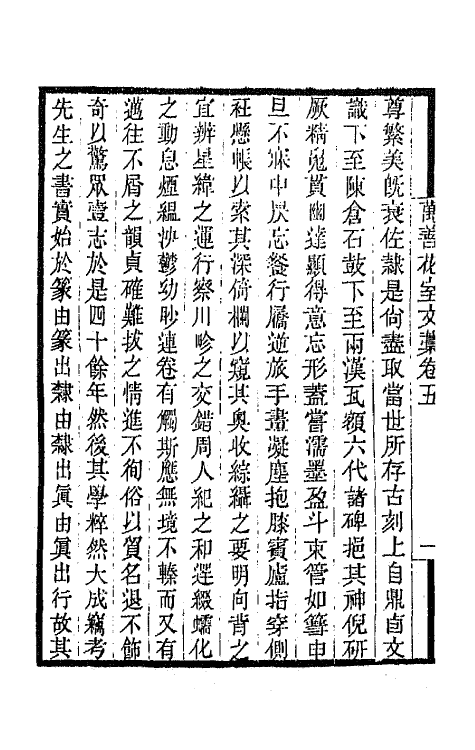 尊繁美旣衰佐隸是尙盡取當世所存古刻上自鼎卣文
識下至陳倉石鼓下至兩漢瓦額六代諸碑挹其神倪硏
厥精鬼黃幽達顯得意忘形蓋嘗濡墨盈斗束管如簪申
旦不寐中昃忘餐行縢逆旅手畫凝塵抱膝賓廬指穿側
衽懸帳以索其深倚欄以窺其奧收綜攝之要明向背之
宜辨星緯之運行察川畛之交錯周人紀之和遲綴蠕化
之動息煙縕沙鬱幼眇連卷有觸斯應無境不臻而又有
邁往不屑之韻貞確難拔之情進不徇俗以質名退不飾
奇以驚眾壹志於是四十餘年然後其學粹然大成竊考
先生之書實始於篆由篆出隸由隸出眞由眞出行故其
萬善花室文藁卷五
一